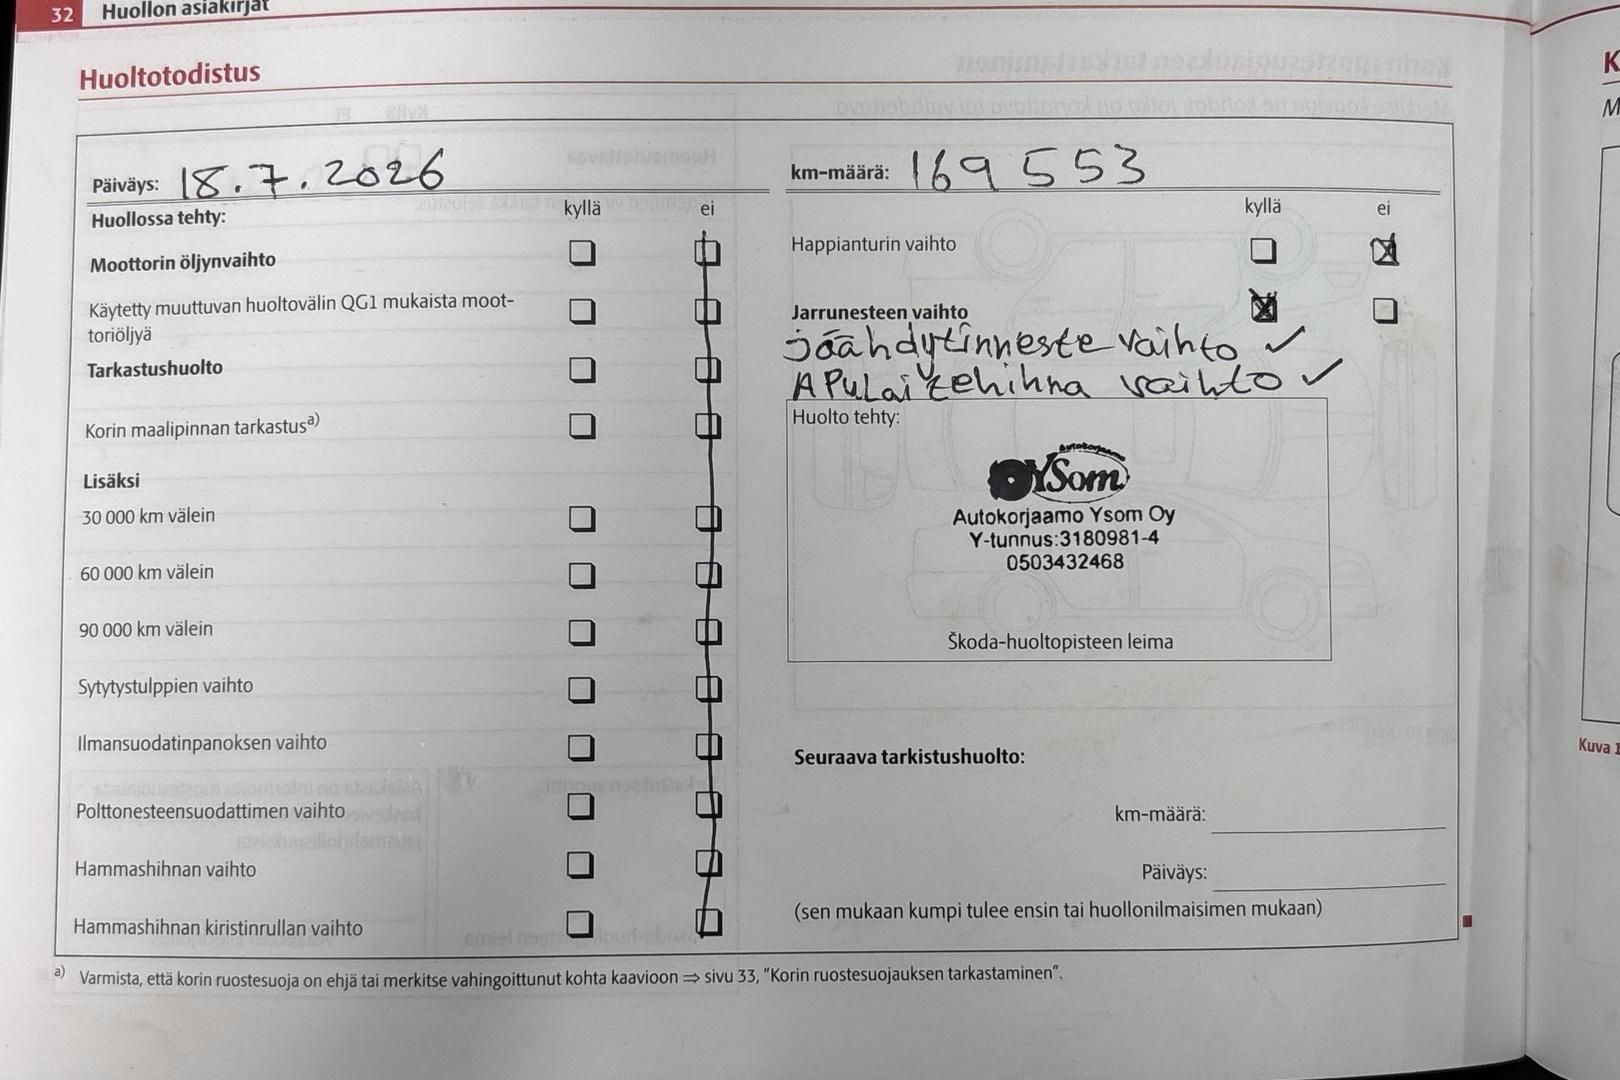 32 Huollon asiakirjat
Huoltotodistus
Päiväys: 18.7.2026
Huollossa tehty: kyllä ei
Moottorin öljynvaihto
Käytetty muuttuvan huoltovälin QG1 mukaista moot-
toriöljyä
Tarkastushuolto
Korin maalipinnan tarkastusa)
Lisäksi
30 000 km välein
60 000 km välein
90 000 km välein
Sytytystulppien vaihto
Ilmansuodatinpanoksen vaihto
Polttonesteensuodattimen vaihto
Hammashihnan vaihto
Hammashihnan kiristinrullan vaihto
km-määrä: 169 553
kyllä ei
Happianturin vaihto
Jarrunesteen vaihto
jäähdytinneste vaihto ✓
APulaitehihna vaihto ✓
Huolto tehty:
Autokorjaamo
YSom
Autokorjaamo Ysom Oy
Y-tunnus:3180981-4
0503432468
Škoda-huoltopisteen leima
Seuraava tarkistushuolto:
km-määrä:
Päiväys:
(sen mukaan kumpi tulee ensin tai huollonilmaisimen mukaan)
a) Varmista, että korin ruostesuoja on ehjä tai merkitse vahingoittunut kohta kaavioon ⇒ sivu 33, "Korin ruostesuojauksen tarkastaminen".
K
M
Kuva 1